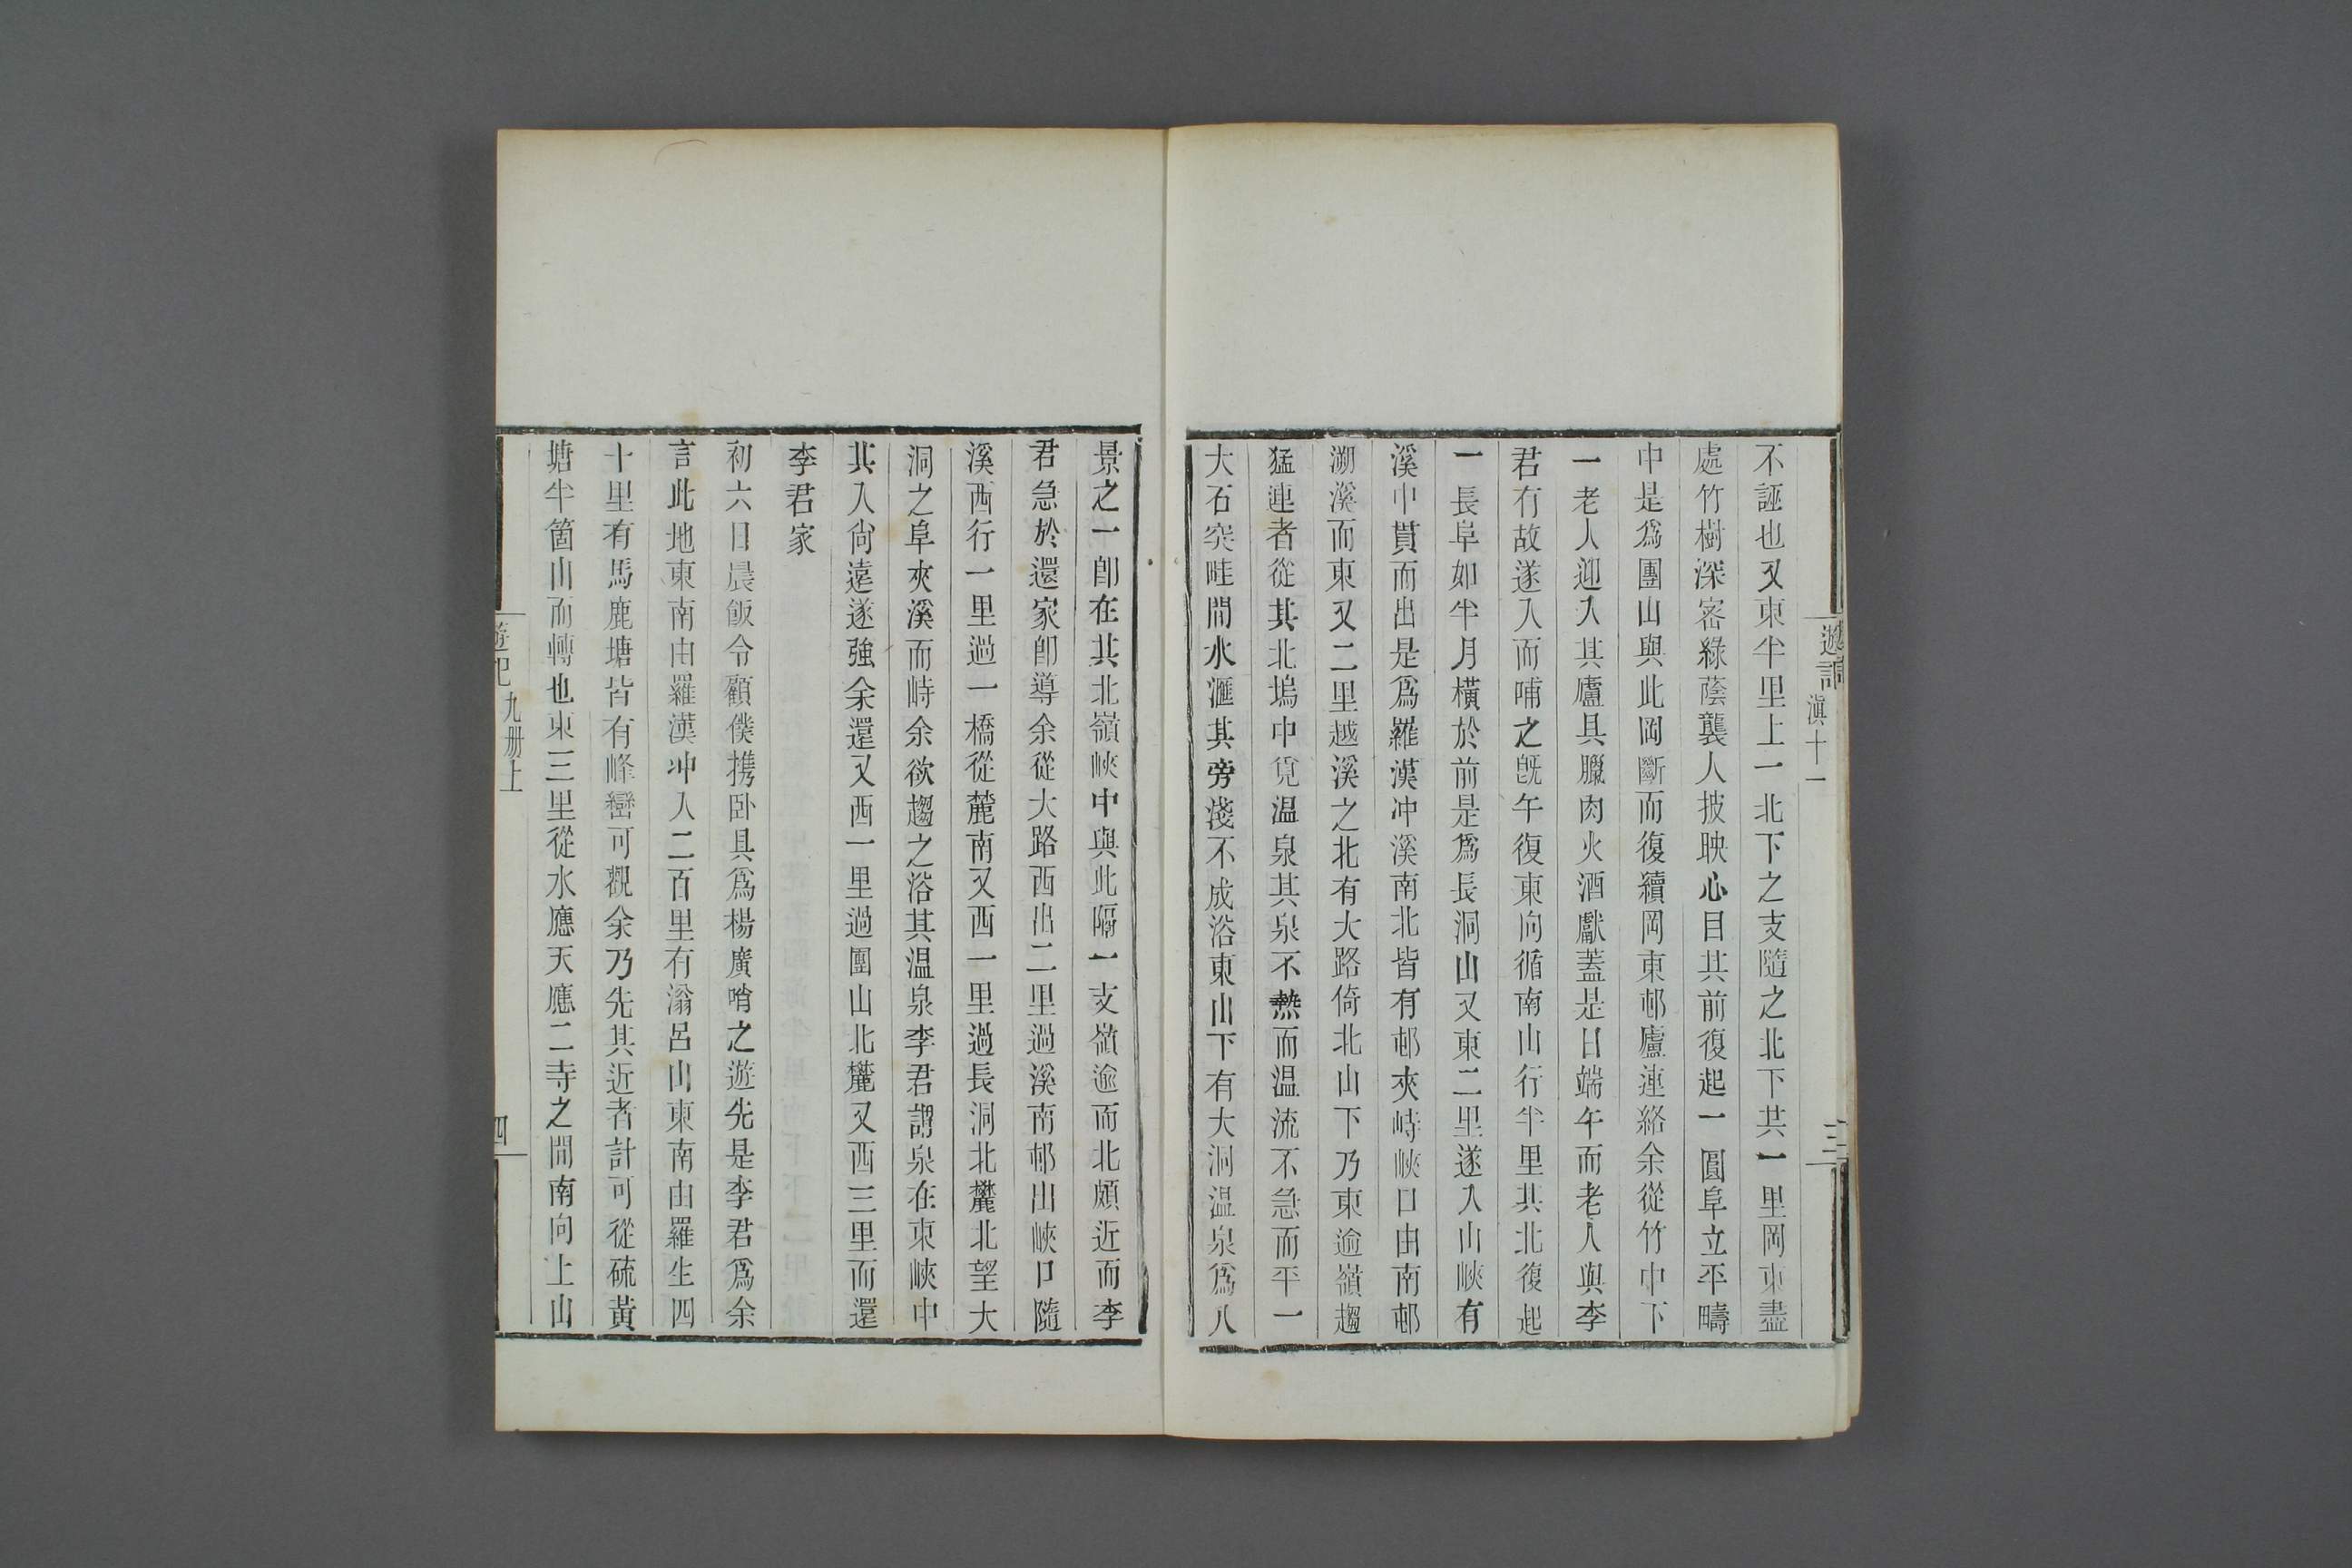 遊記
滇十一
三
不誣也又東半里上一北下之支隨之北下共一里岡東盡
處竹樹深密綠蔭襲人披映心目其前復起一圓阜立平疇
中是爲團山與此岡斷而復續岡東邨廬連絡余從竹中下
一老人迎入其廬具臘肉火酒獻蓋是日端午而老人與李
君有故遂入而哺之旣午復東向循南山行半里其北復起
一長阜如半月橫於前是爲長洞山又東二里遂入山峽有
溪中貫而出是爲羅漢冲溪南北皆有邨夾峙峽口由南邨
溯溪而東又二里越溪之北有大路倚北山下乃東逾嶺趨
猛連者從其北塢中覓温泉其泉不熱而温流不急而平一
大石突畦間水滙其旁淺不成浴東山下有大洞温泉爲八
景之一卽在其北嶺峽中與此隔一支嶺逾而北頗近而李
君急於還家卽導余從大路西出二里過溪南邨出峽口隨
溪西行一里過一橋從麓南又西一里過長洞北麓北望大
洞之阜夾溪而峙余欲趨之浴其温泉李君謂泉在東峽中
其入尙遠遂強余還又西一里過團山北麓又西三里而還
李君家
初六日晨飯令顧僕携卧具爲楊廣哨之遊先是李君爲余
言此地東南由羅漢冲入二百里有滃呂山東南由羅生四
十里有馬鹿塘皆有峰巒可觀余乃先其近者計可從硫黃
塘半箇山而轉也東三里從水應天應二寺之間南向上山
遊記
九册上
四